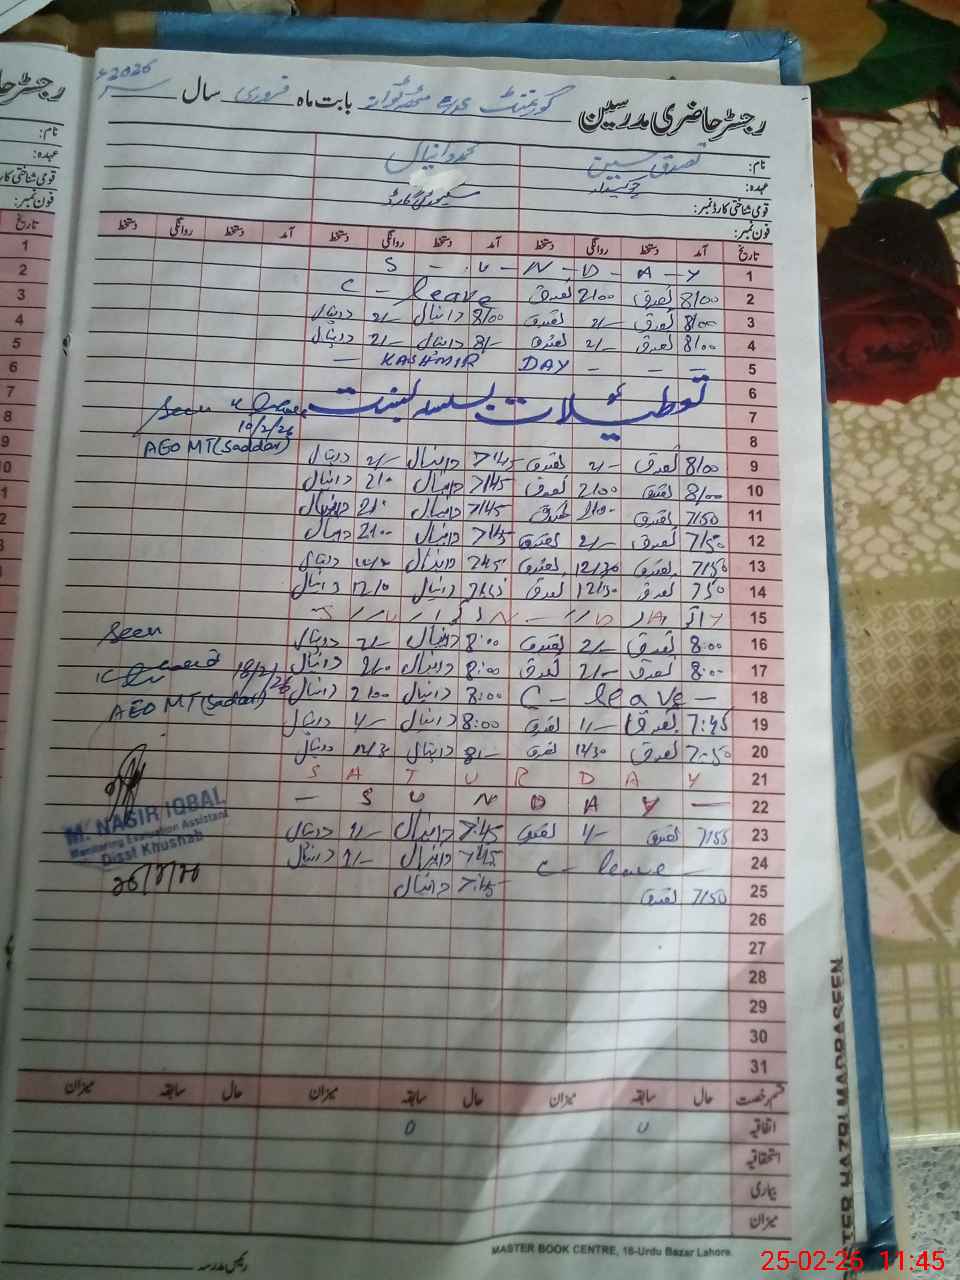 رجسٹر حاضری مدرسین گورنمنٹ بابت ماہ فروری سال 2026ء
نام: تصدق حسین محمد دانیال
عہدہ: چوکیدار سیکیورٹی گارڈ
قومی شناختی کارڈ نمبر:
فون نمبر:
تاریخ آمد دستخط روانگی دستخط آمد دستخط روانگی دستخط آمد دستخط روانگی دستخط
1 S - U - N - D - A - Y
2 8/00 تصدق 2/00 تصدق C - leave
3 8/00 تصدق 2/- تصدق 8/00 دانیال 2/- دانیال
4 8/00 تصدق 2/- تصدق 8/- دانیال 2/- دانیال
5 - KASHMIR DAY - - -
6
7 تعطیلات بسلسلہ بسنت
8
Seen
10/2/26
AEO MT (Saddar)
9 8/00 تصدق 2/- تصدق 7/45 دانیال 2/- دانیال
10 8/00 تصدق 2/00 تصدق 7/45 دانیال 2/0 دانیال
11 7/50 تصدق 2/00 تصدق 7/45 دانیال 2/0 دانیال
12 7/50 تصدق 2/- تصدق 7/45 دانیال 2/00 دانیال
13 7/50 تصدق 12/30 تصدق 7/45 دانیال دانیال
14 7/50 تصدق 12/30 تصدق 7/45 دانیال 12/0 دانیال
15 S U N D A Y
16 8:00 تصدق 2/- تصدق 8:00 دانیال 2/- دانیال
Seen
17 8:00 تصدق 2/- تصدق 8:00 دانیال 2/0 دانیال
18/2/26
18 C - leave - 8:00 دانیال 2/00 دانیال
AEO MT (Saddar)
19 7:45 تصدق 1/- تصدق 8:00 دانیال 1/- دانیال
20 7:50 تصدق 12/30 تصدق 8/- دانیال 12/3 دانیال
21 S A T U R D A Y
22 - S U N D A Y -
M. NASIR IQBAL
Monitoring Evaluation Assistant
Disst Khushab
23 7/55 تصدق 1/- تصدق 7:45 دانیال 1/- دانیال
24 C - leave - 7/45 دانیال 1/- دانیال
25 7/50 تصدق 7:45 دانیال
26
27
28
29
30
31
قسم رخصت حال سابقہ میزان حال سابقہ میزان حال سابقہ میزان
اتفاقیہ 0 0
استحقاقیہ
بیماری
میزان
رئیس مدرسہ
MASTER BOOK CENTRE, 18-Urdu Bazar Lahore.
رجسٹر حاضری
نام:
عہدہ:
قومی شناختی کارڈ
فون نمبر:
تاریخ
1
2
3
4
5
6
7
8
9
10
MASTER HAZRI MADRASEEN
25-02-26 11:45